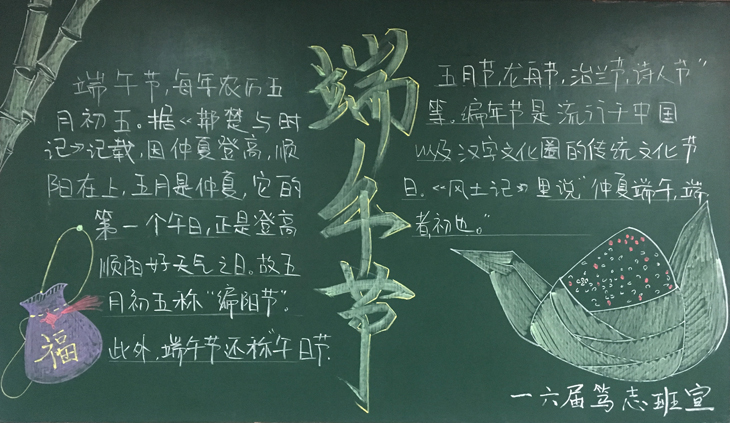 端午节
端午节,每年农历五
月初五。据《荆楚与时
记》记载,因仲夏登高,顺
阳在上,五月是仲夏,它的
第一个午日,正是登高
顺阳好天气之日。故五
月初五称“端阳节”。
此外,端午节还称“午日节、
五月节,龙舟节,浴兰节,诗人节”
等。端午节是流行于中国
以及汉字文化圈的传统文化节
日。《风土记》里说“仲夏端午,端
者,初也。”
福
一六届笃志班宣